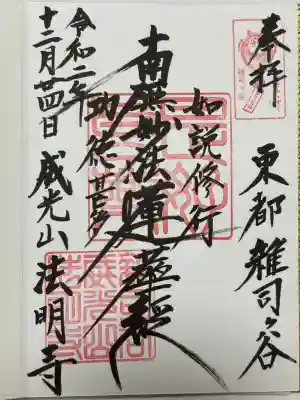 奉拝
東都 雑司ヶ谷
如説修行
南無妙法蓮華経
功徳甚多
威光山 法明寺
令和二年
十二月廿四日